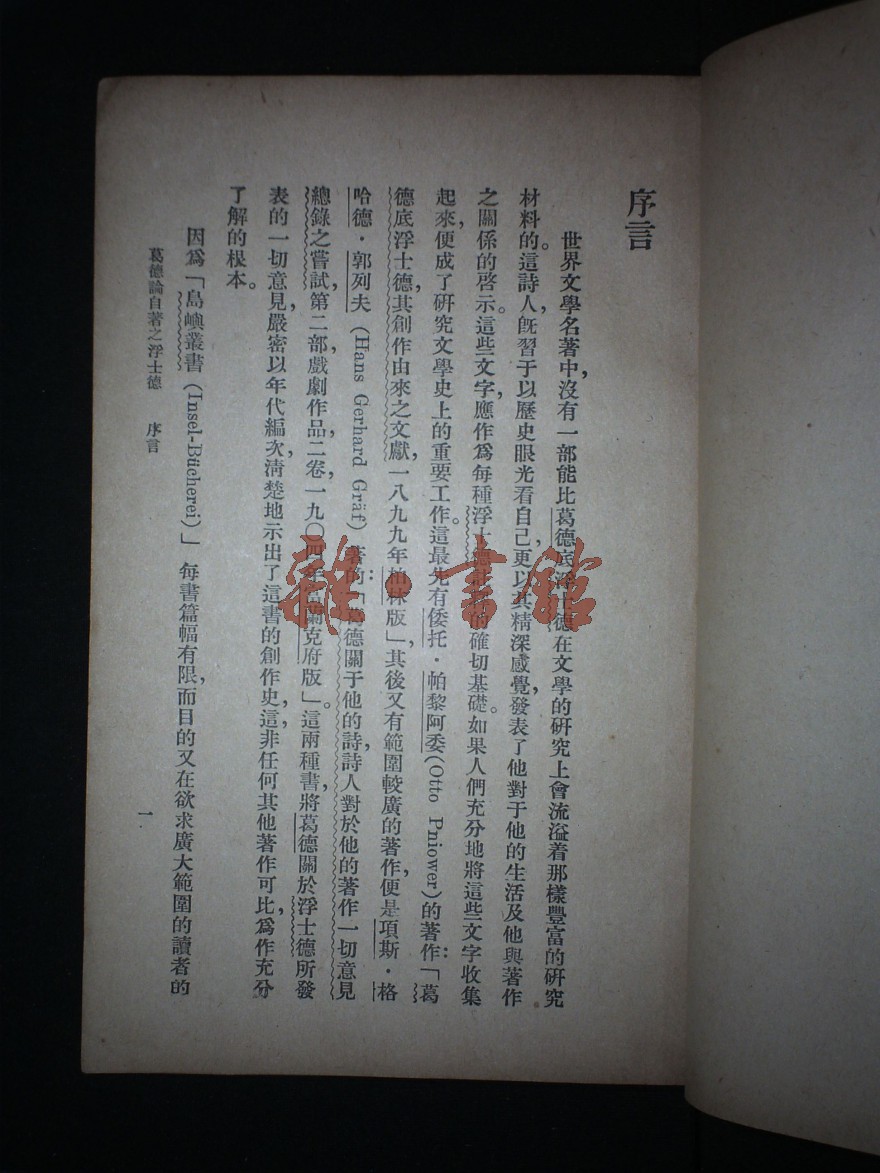 序言
世界文學名著中，沒有一部能比葛德底浮士德在文學的研究上會流溢着那樣豐富的研究
材料的。這詩人，既習于以歷史眼光看自己，更以其精深感覺，發表了他對于他的生活及他與著作
之關係的啓示。這些文字，應作爲每種浮士德的確切基礎。如果人們充分地將這些文字收集
起來，便成了研究文學史上的重要工作。這最先有倭托·帕黎阿委(Otto Pniower)的著作：「葛
德底浮士德其創作由來之文獻，一八九九年柏林版」其後又有範圍較廣的著作，便是項斯·格
哈德·郭列夫(Hans Gerhard Gräf)著的：「葛德關于他的詩，詩人對於他的著作一切意見
總錄之嘗試，第二部，戲劇作品，二卷，一九〇四年蘭克府版」。這兩種書，將葛德關於浮士德所發
表的一切意見，嚴密以年代編次，淸楚地示出了這書的創作史，這，非任何其他著作可比，爲作充分
了解的根本。
因爲「島嶼叢書(Insel-Bücherei)」每書篇幅有限，而目的又在欲求廣大範圍的讀者的
葛德論自著之浮士德　序言
一
雜·書館